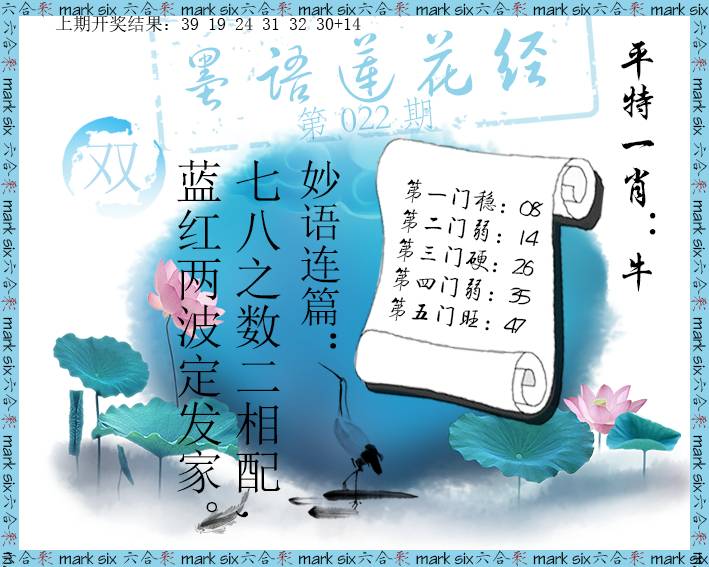 上期开奖结果：39 19 24 31 32 30+14
墨语莲花经
第 022 期
双
平特一肖：牛
第一门稳：08
第二门弱：14
第三门硬：26
第四门弱：35
第五门旺：47
妙语连篇：
七八之数二相配，
蓝红两波定发家。
mark six 六合彩 mark six 六合彩 mark six 六合彩 mark six 六合彩 mark six 六合彩
mark six 六合彩 mark six 六合彩 mark six 六合彩 mark six 六合彩 mark six 六合彩